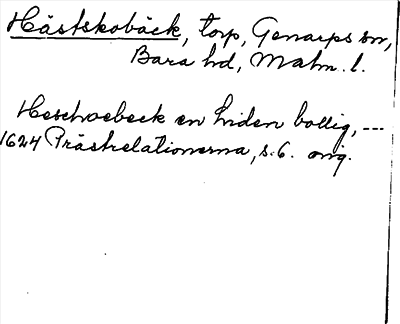 Hästskobäck, torp, Genarps sn,
Bara hd, Malm. l.
Heschoebeck en liden bollig, ---
1624 Prästrelationerna, s. 6. orig.